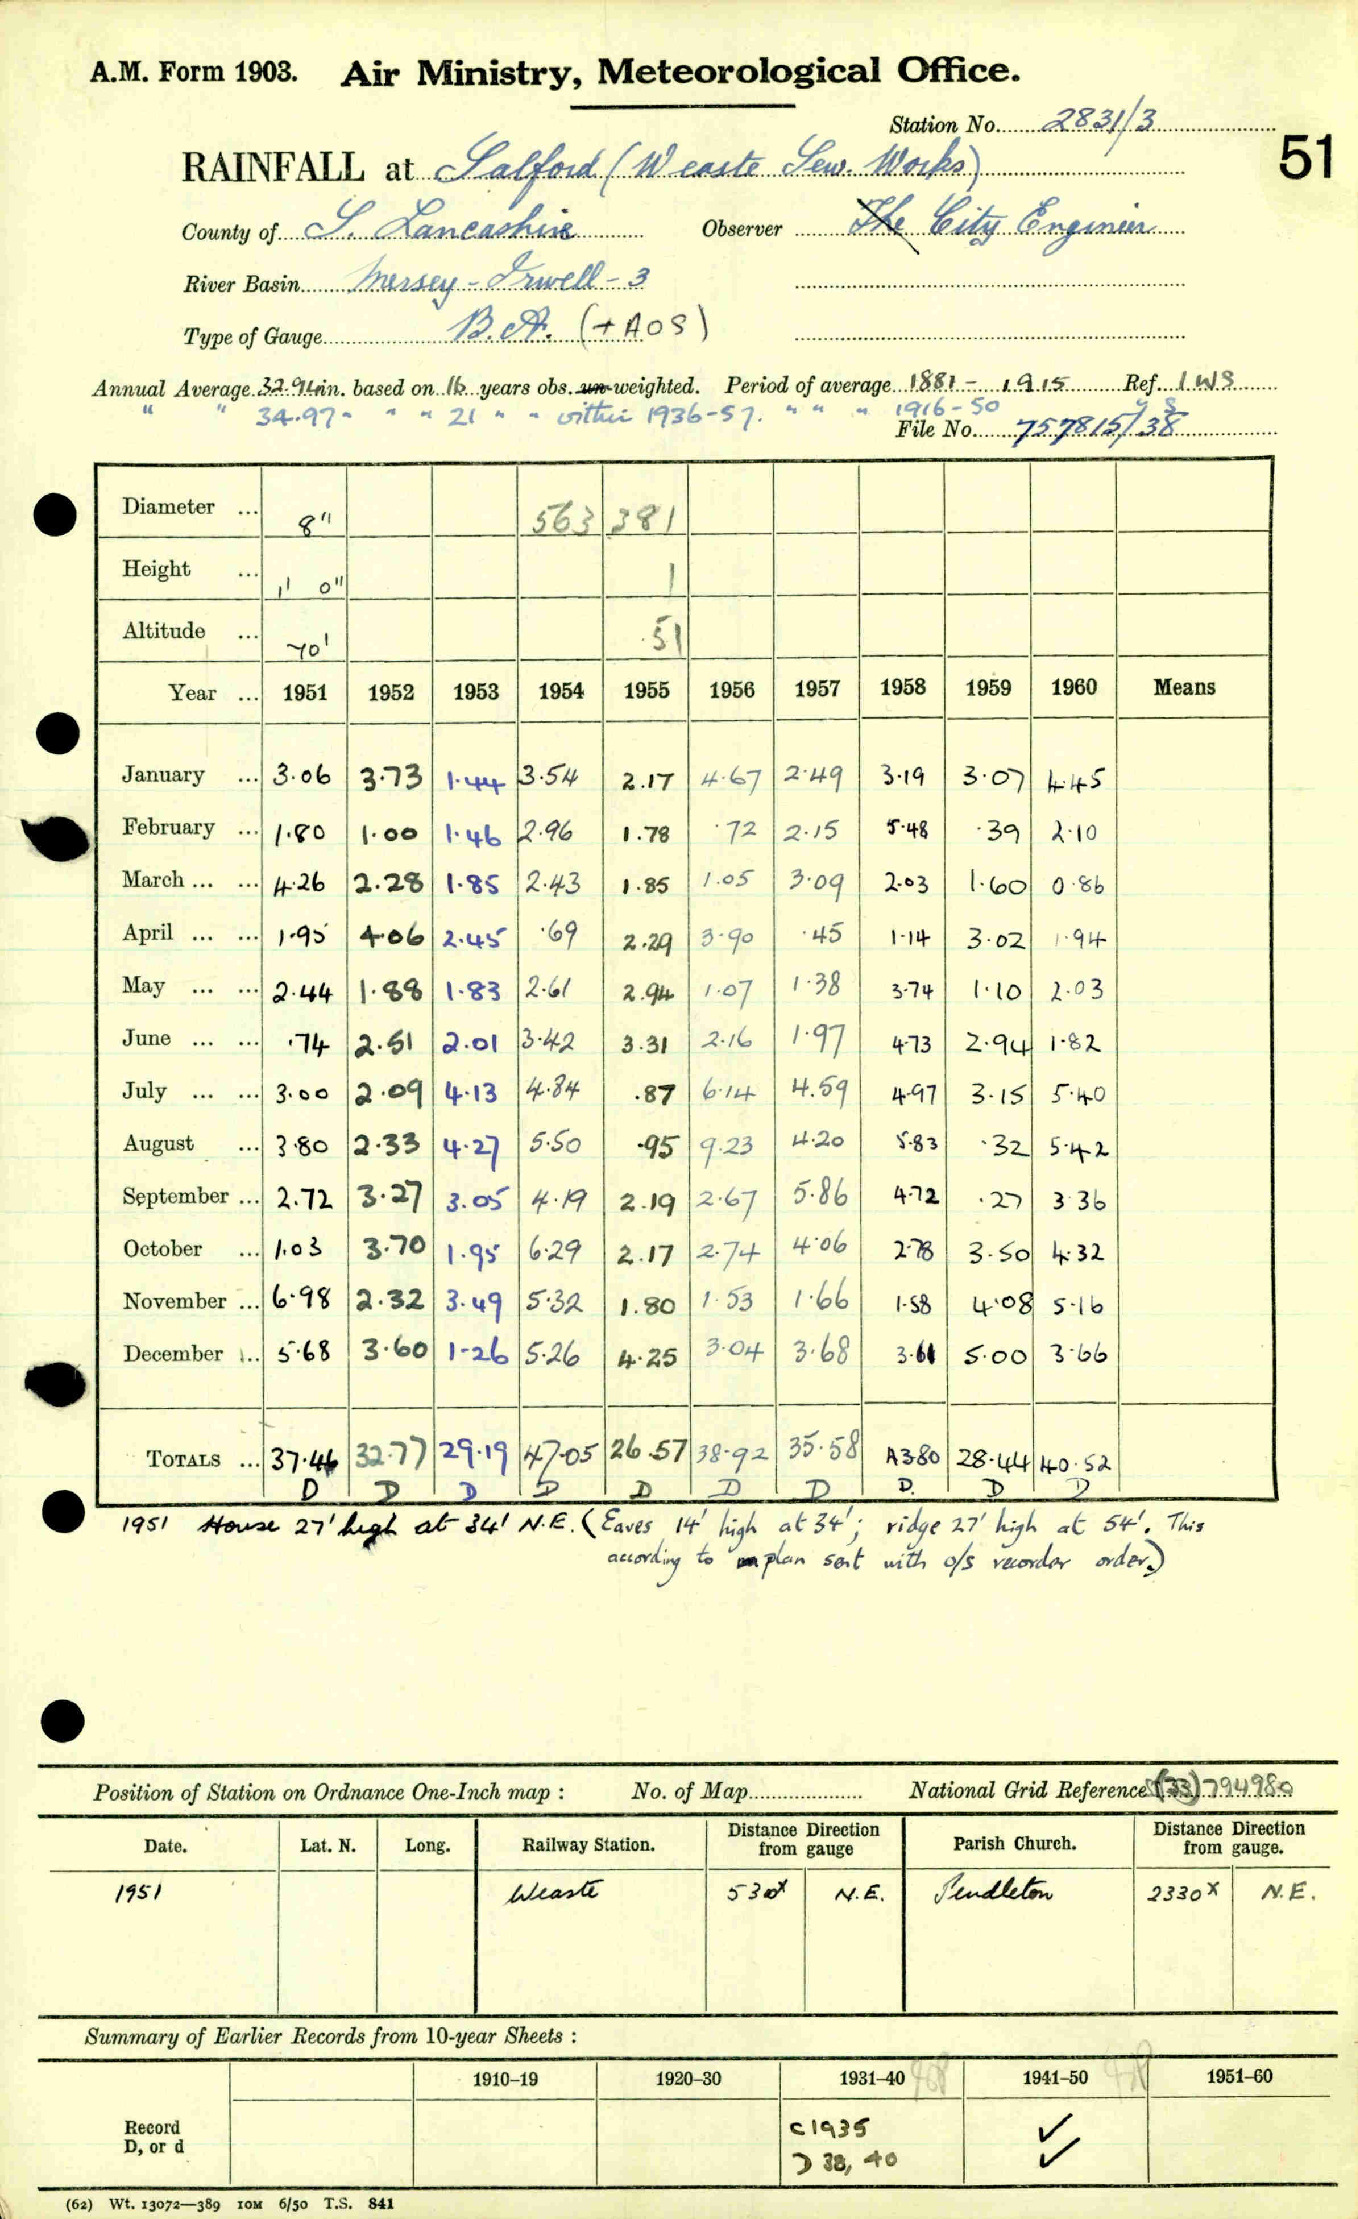 A.M. Form 1903. Air Ministry, Meteorological Office.
Station No. 2831/3
51
RAINFALL at Salford (Weaste Sew. Works)
County of S. Lancashire Observer The City Engineer
River Basin Mersey - Irwell - 3
Type of Gauge B.A. (+AOS)
Annual Average 32.94 in. based on 16 years obs. un-weighted. Period of average 1881 - 1915 Ref. IWS
" " 34.97 " " " 21 " " within 1936-57. " " " 1916-50
File No. 757815/38
Diameter ... 8" 563 381
Height ... 1' 0" 1
Altitude ... 70' 51
Year ... 1951 1952 1953 1954 1955 1956 1957 1958 1959 1960 Means
January ... 3.06 3.73 1.44 3.54 2.17 4.67 2.49 3.19 3.07 4.45
February ... 1.80 1.00 1.46 2.96 1.78 .72 2.15 5.48 .39 2.10
March ... ... 4.26 2.28 1.85 2.43 1.85 1.05 3.09 2.03 1.60 0.86
April ... ... 1.95 4.06 2.45 .69 2.29 3.90 .45 1.14 3.02 1.94
May ... ... 2.44 1.88 1.83 2.61 2.94 1.07 1.38 3.74 1.10 2.03
June ... ... .74 2.51 2.01 3.42 3.31 2.16 1.97 4.73 2.94 1.82
July ... ... 3.00 2.09 4.13 4.84 .87 6.14 4.59 4.97 3.15 5.40
August ... 3.80 2.33 4.27 5.50 .95 9.23 4.20 5.83 .32 5.42
September ... 2.72 3.27 3.05 4.19 2.19 2.67 5.86 4.72 .27 3.36
October ... 1.03 3.70 1.95 6.29 2.17 2.74 4.06 2.78 3.50 4.32
November ... 6.98 2.32 3.49 5.32 1.80 1.53 1.66 1.58 4.08 5.16
December ... 5.68 3.60 1.26 5.26 4.25 3.04 3.68 3.61 5.00 3.66
TOTALS ... 37.46 32.77 29.19 47.05 26.57 38.92 35.58 4380 28.44 40.52
D D D D D D D D. D D
1951 House 27' high at 34' N.E. (Eaves 14' high at 34'; ridge 27' high at 54'. This
according to plan sent with o/s recorder order.)
Position of Station on Ordnance One-Inch map : No. of Map National Grid Reference (33) 794980
Date. Lat. N. Long. Railway Station. Distance Direction from gauge Parish Church. Distance Direction from gauge.
1951 Weaste 530x N.E. Pendleton 2330x N.E.
Summary of Earlier Records from 10-year Sheets :
1910-19 1920-30 1931-40 1941-50 1951-60
Record c1935 ✓
D, or d D 38, 40 ✓
(62) Wt. 13072—389 10M 6/50 T.S. 841